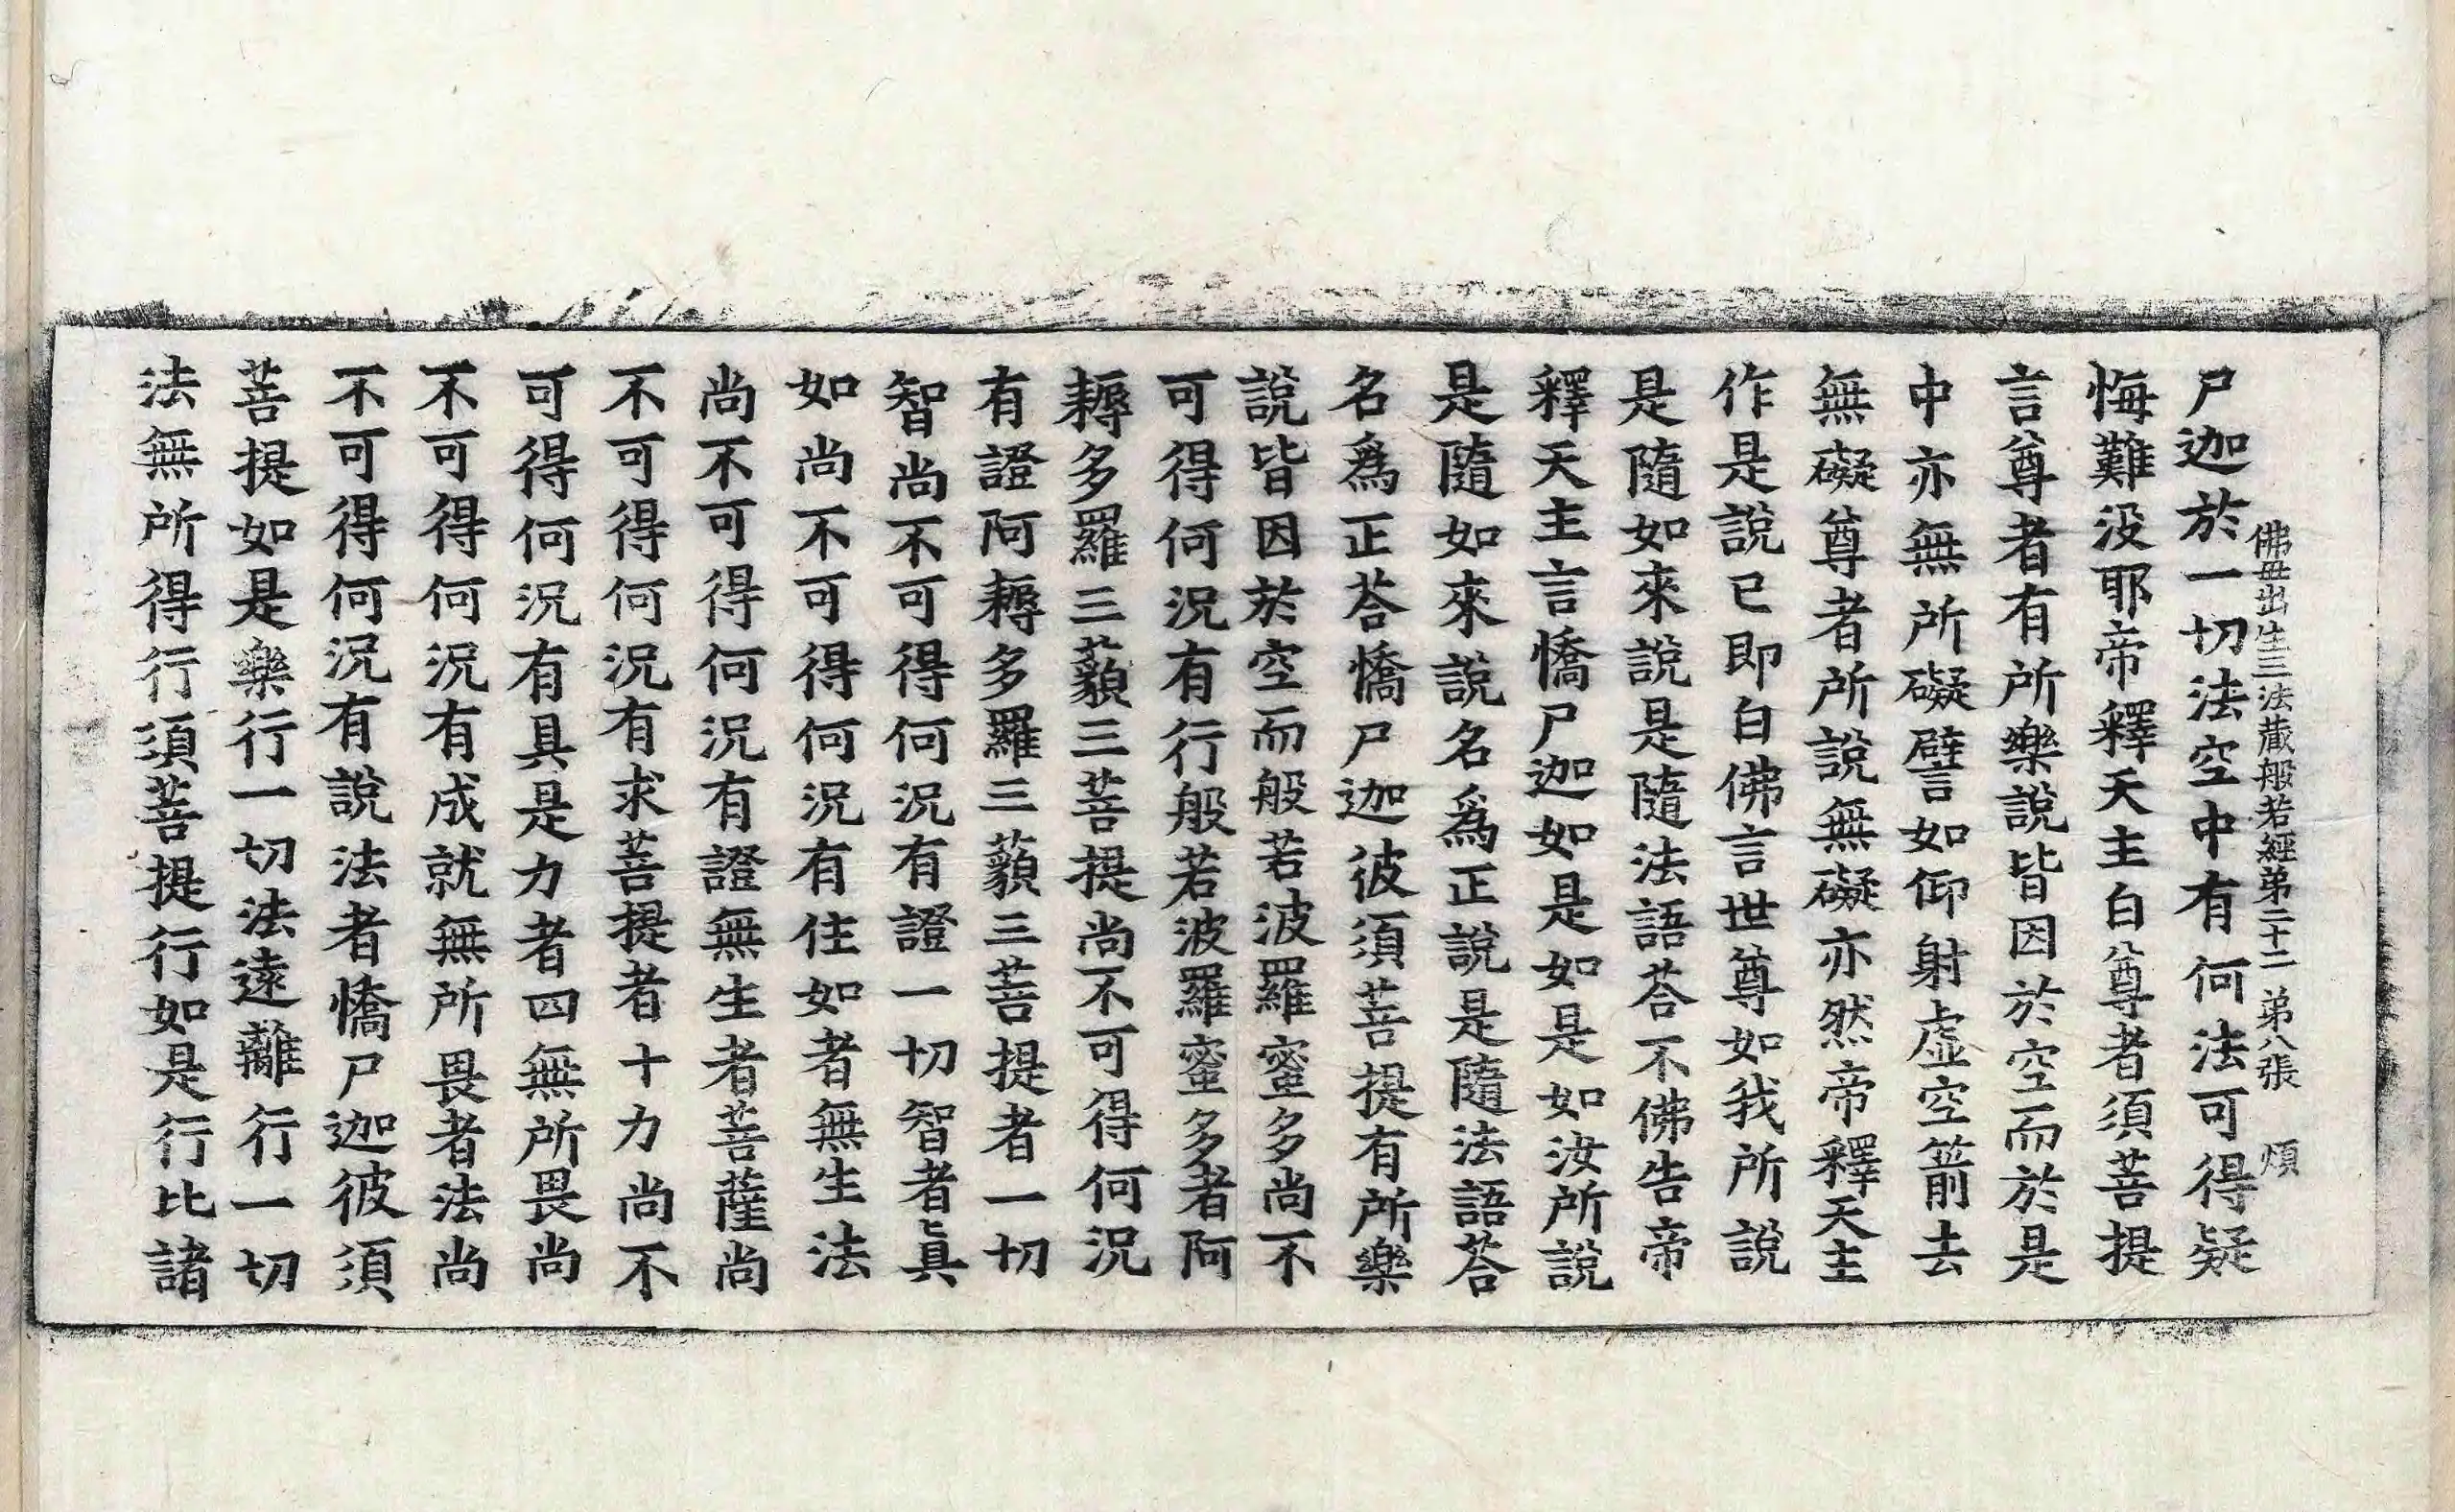 佛母出生三法藏般若經第二十二 第八張 煩
尸迦於一切法空中有何法可得疑
悔難没耶帝釋天主白尊者須菩提
言尊者有所樂說皆因於空而於是
中亦無所礙譬如仰射虛空箭去
無礙尊者所說無礙亦然帝釋天主
作是說已即白佛言世尊如我所說
是隨如來說是隨法語荅不佛告帝
釋天主言憍尸迦如是如是如汝所說
是隨如來說名爲正說是隨法語荅
名爲正荅憍尸迦彼須菩提有所樂
說皆因於空而般若波羅蜜多尚不
可得何況有行般若波羅蜜多者阿
耨多羅三藐三菩提尚不可得何況
有證阿耨多羅三藐三菩提者一切
智尚不可得何況有證一切智者眞
如尚不可得何況有住如者無生法
尚不可得何況有證無生者菩薩尚
不可得何況有求菩提者十力尚不
可得何況有具是力者四無所畏尚
不可得何況有成就無所畏者法尚
不可得何況有說法者憍尸迦彼須
菩提如是樂行一切法遠離行一切
法無所得行須菩提行如是行比諸